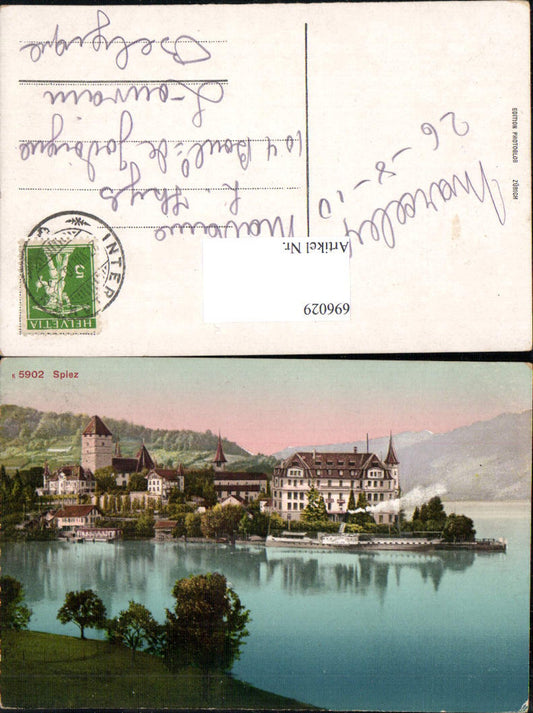 Madame
L. Thys
104 Boul? de Jodoigne
Louvain
Belgique
Marcelle
26-8-10
EDITION PHOTOGLOB ZÜRICH
INTER
5
HELVETIA
Artikel Nr.
696029
K 5902 Spiez